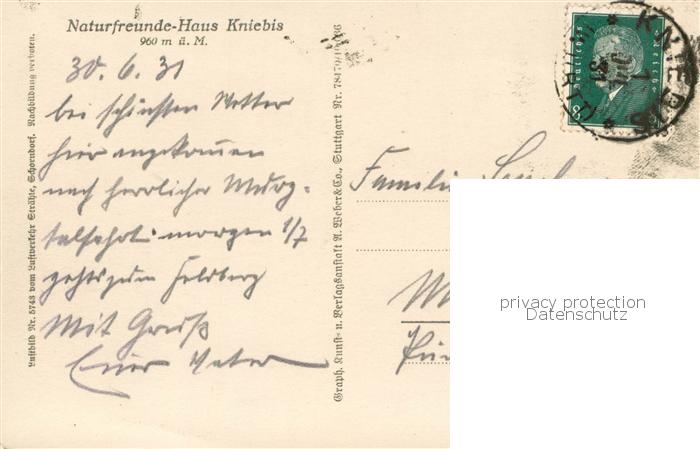 Naturfreunde-Haus Kniebis
960 m ü. M.
30.6.31
bei schönsten Wetter
hier angekommen
nach herrlicher Murg-
talfahrt. morgen 1/7
gehts zum Feldberg
Mit Gruß
Euer Vater
Luftbild Nr. 5743 vom Luftverkehr Strähle, Schorndorf. Nachbildung verboten.
Graph. Kunst- u. Verlagsanstalt A. Weber & Co., Stuttgart Nr.
Deutsches Reich
8
KNIEBIS
Familie
privacy protection
Datenschutz